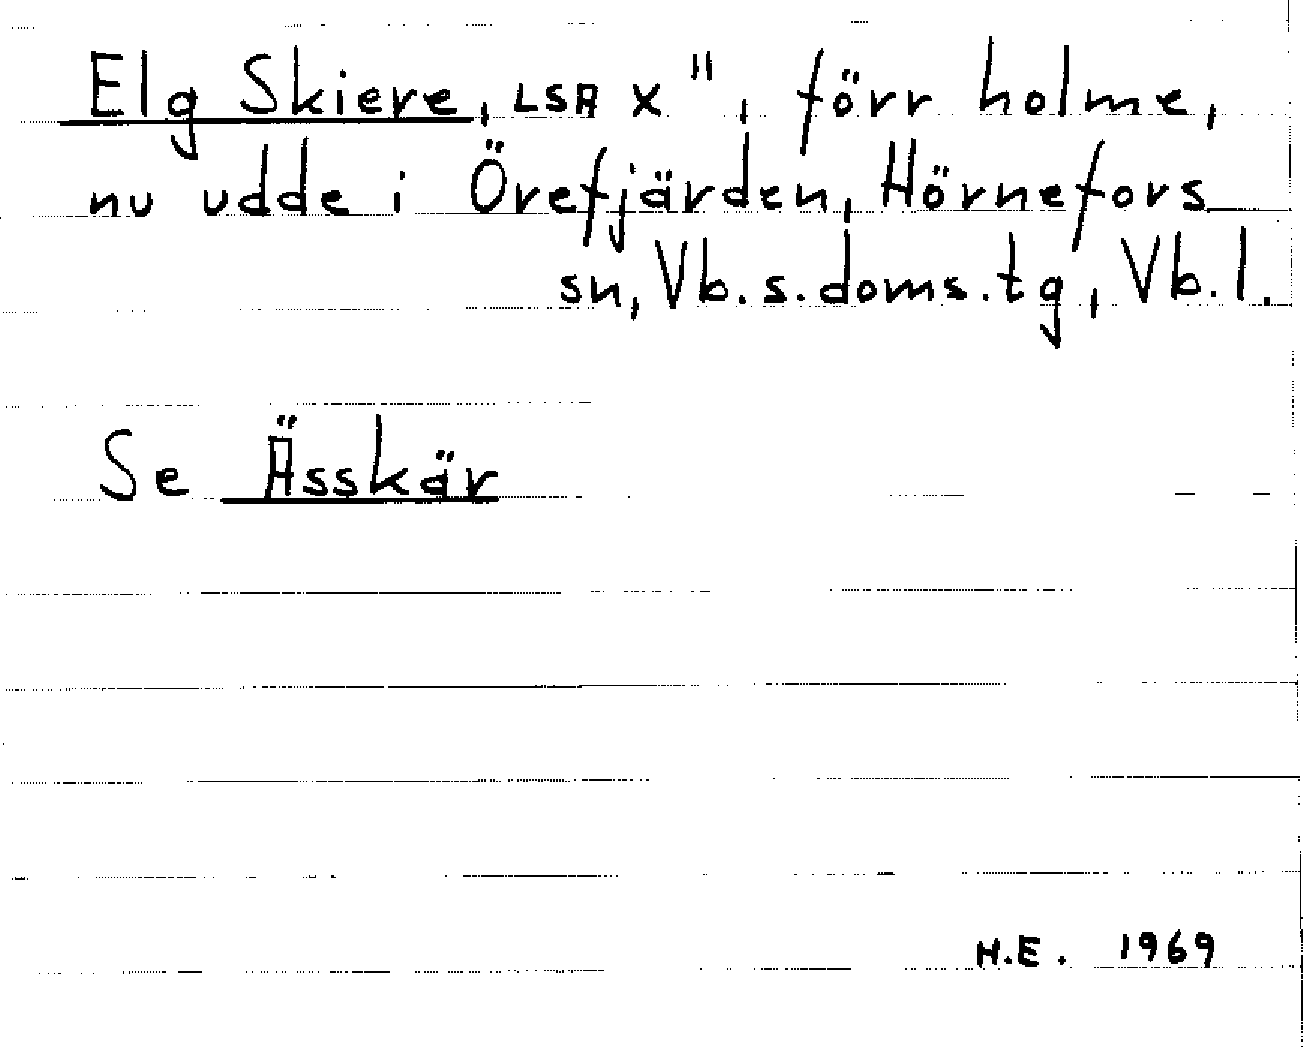 Elg Skiere, LSA X", förr holme,
nu udde i Örefjärden, Hörnefors
sn, Vb.s.doms.tg, Vb.l.
Se Ässkär
H.E. 1969